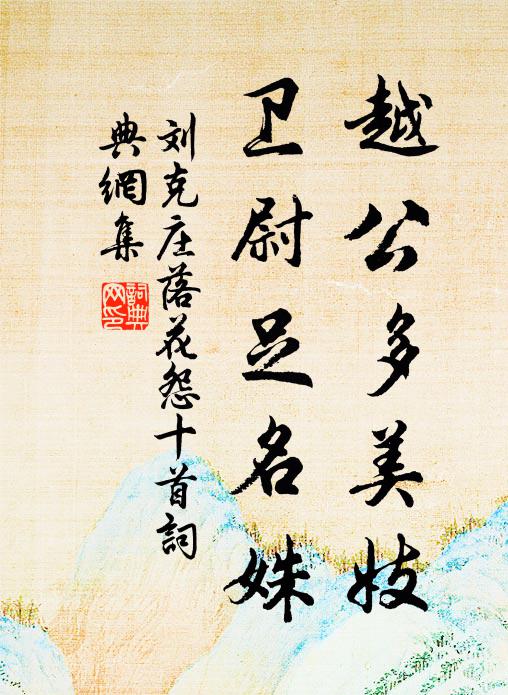 越公多美妓
卫尉足名姝
刘克庄落花怨十首詞
典網集
詞典
网印